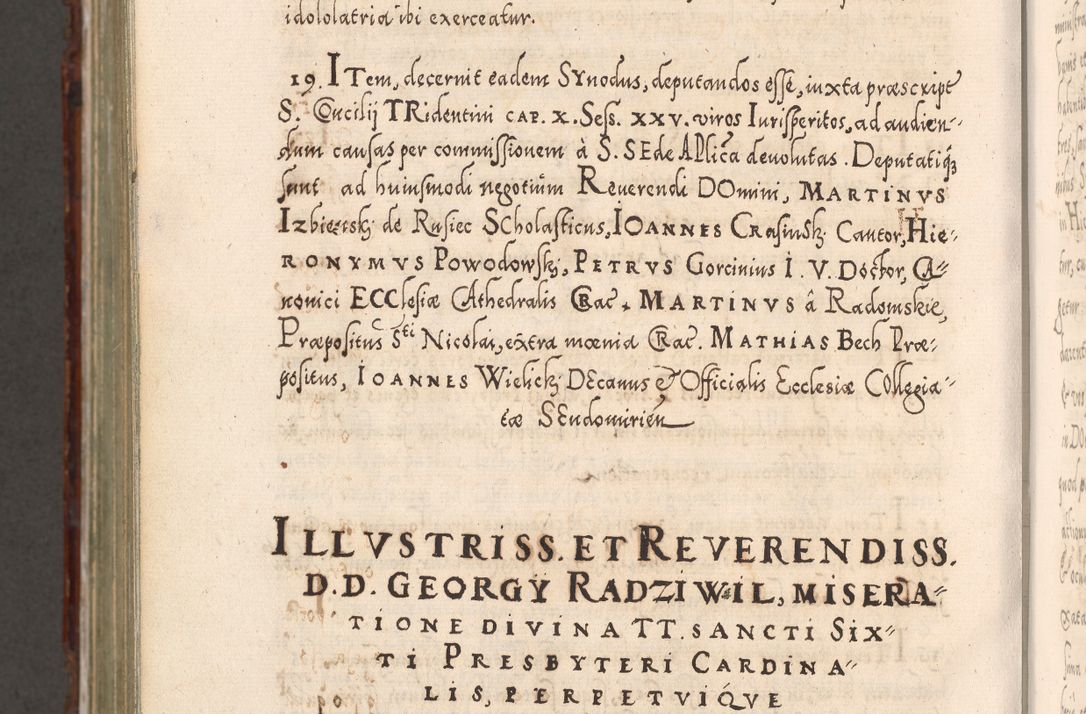 idololatria ibi exerceatur.
19. ITem, decernit eadem SYnodus, deputandos esse, iuxta præscript
S. COncilij TRidentini CAP. X. Sess. XXV. viros Iurisperitos, ad audien-
dum causas per commissionem à S. SEde APlica deuolutas. Deputatiq;
sunt ad huiusmodi negotium Reuerendi DOmini, MARTINVS
Izbienski de Rusiec SCholasticus, IOANNES CRasinSki Cantor, HIE-
RONYMVS POwodowski, PETRVS Gorcinius I. V. Doctor, CA-
nonici ECClesiæ CAthedralis CRac. MARTINVS â Radomskie,
Præpositus Sti Nicolai, extra mœnia CRac. MATHIAS Bech Præ-
positus, IOANNES Wielicki DEcanus & Officialis Ecclesiæ COllegia-
tæ SEndomirien
ILLVSTRISS. ET REVERENDISS.
D. D. GEORGY RADZIWIL, MISERA-
TIONE DIVINA TT. SANCTI SIX-
TI PRESBYTERI CARDINA-
LIS, PERPETVIQVE